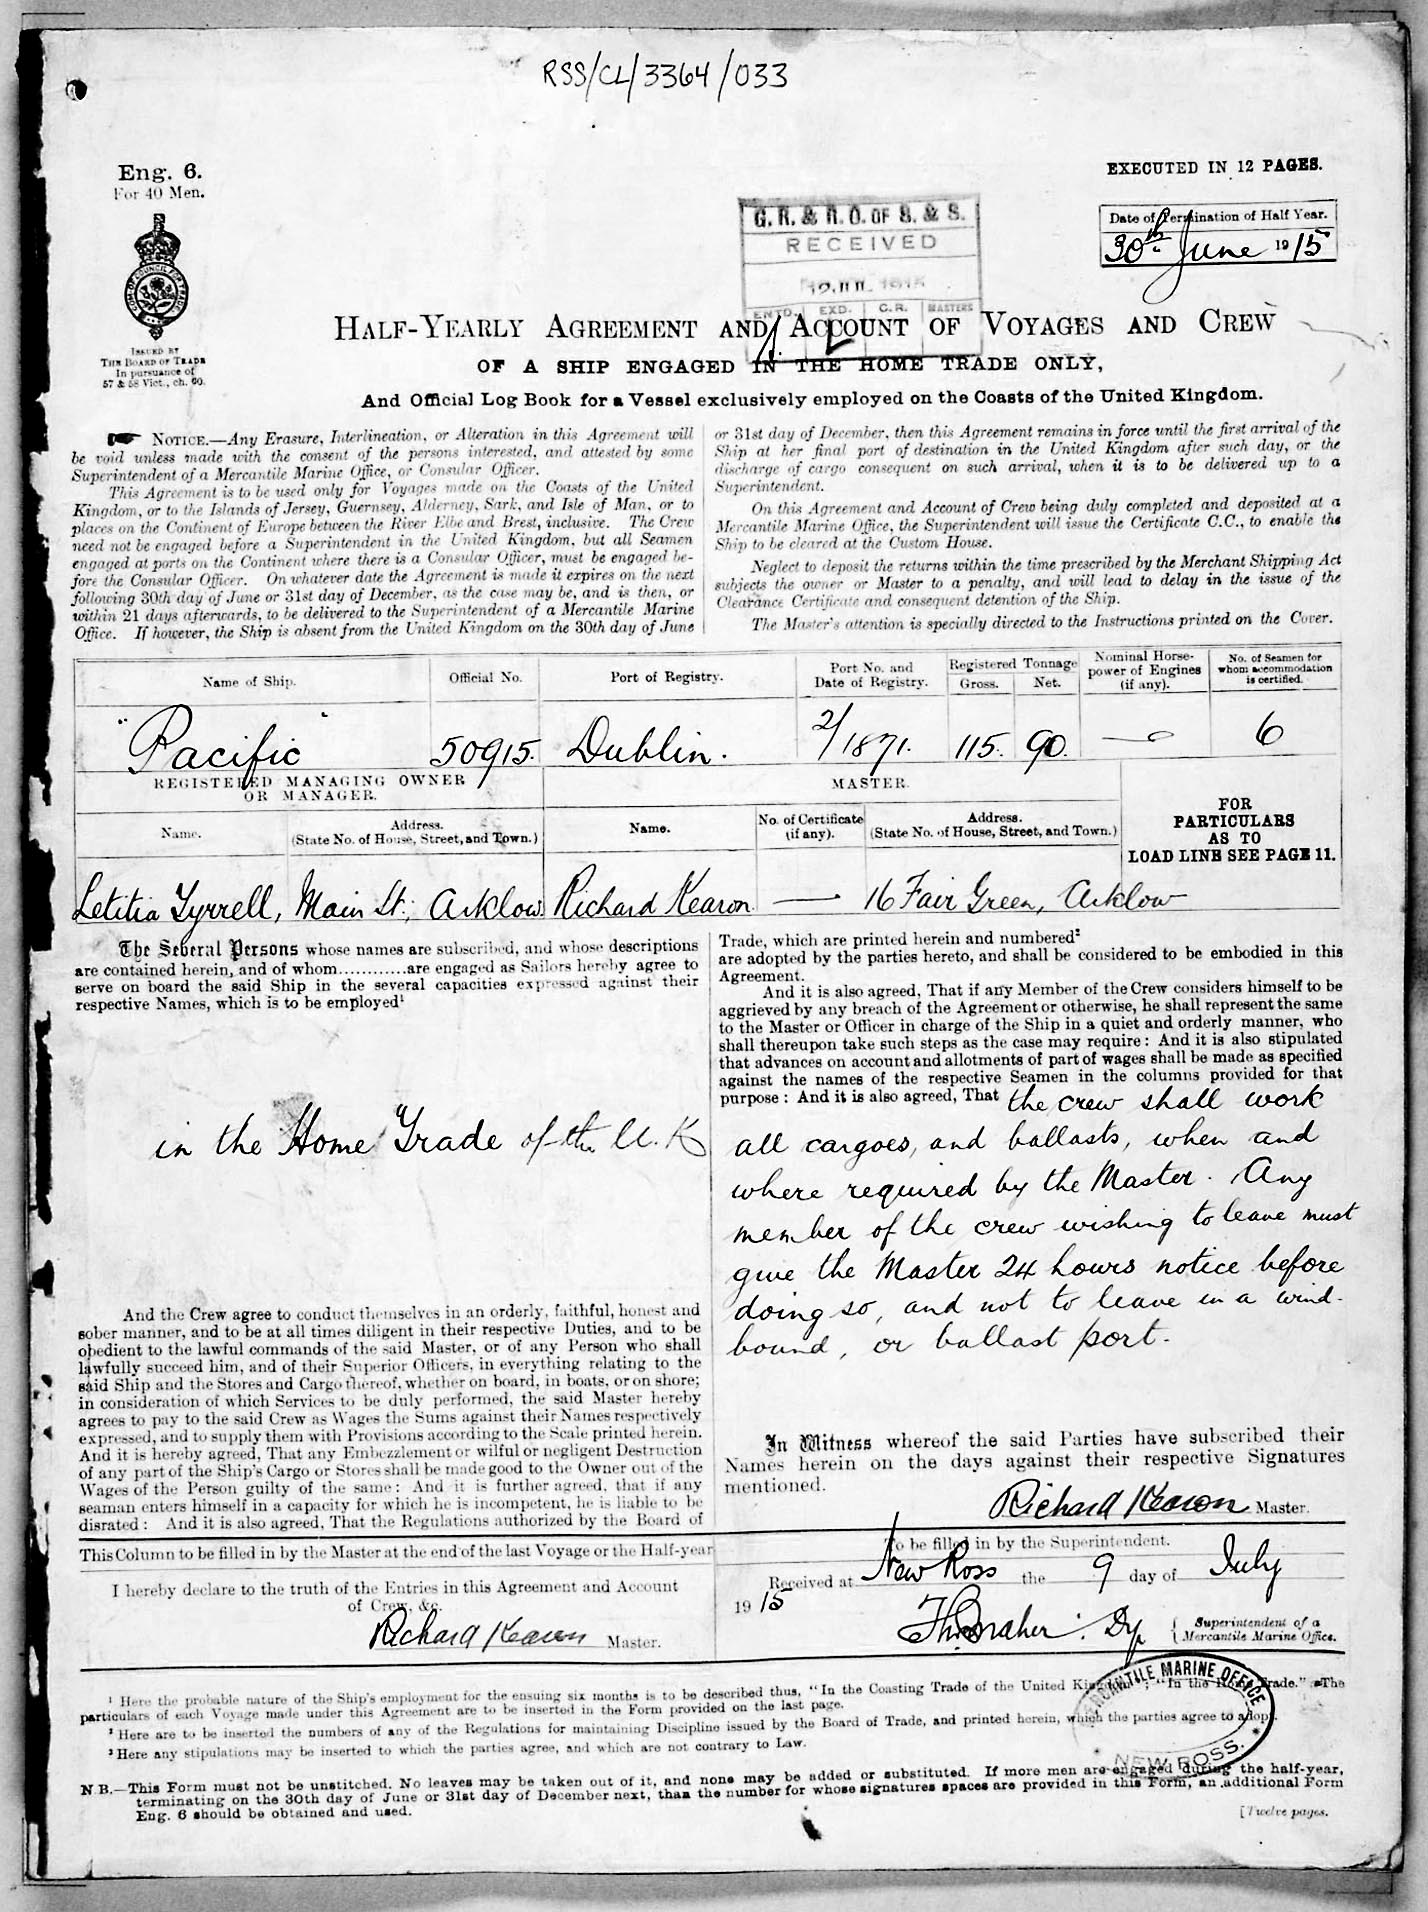 RSS/CL/3364/033
Eng. 6.
For 40 Men.
EXECUTED IN 12 PAGES.
G. R. & R. O. OF S. & S.
RECEIVED
ENTD. EXD. C.R. MASTERS
Date of Termination of Half Year.
30th June 1915
ISSUED BY
THE BOARD OF TRADE
In pursuance of
57 & 58 Vict., ch. 60.
HALF-YEARLY AGREEMENT AND ACCOUNT OF VOYAGES AND CREW
OF A SHIP ENGAGED IN THE HOME TRADE ONLY,
And Official Log Book for a Vessel exclusively employed on the Coasts of the United Kingdom.
NOTICE.—Any Erasure, Interlineation, or Alteration in this Agreement will
be void unless made with the consent of the persons interested, and attested by some
Superintendent of a Mercantile Marine Office, or Consular Officer.
This Agreement is to be used only for Voyages made on the Coasts of the United
Kingdom, or to the Islands of Jersey, Guernsey, Alderney, Sark, and Isle of Man, or to
places on the Continent of Europe between the River Elbe and Brest, inclusive. The Crew
need not be engaged before a Superintendent in the United Kingdom, but all Seamen
engaged at ports on the Continent where there is a Consular Officer, must be engaged be-
fore the Consular Officer. On whatever date the Agreement is made it expires on the next
following 30th day of June or 31st day of December, as the case may be, and is then, or
within 21 days afterwards, to be delivered to the Superintendent of a Mercantile Marine
Office. If however, the Ship is absent from the United Kingdom on the 30th day of June
or 31st day of December, then this Agreement remains in force until the first arrival of the
Ship at her final port of destination in the United Kingdom after such day, or the
discharge of cargo consequent on such arrival, when it is to be delivered up to a
Superintendent.
On this Agreement and Account of Crew being duly completed and deposited at a
Mercantile Marine Office, the Superintendent will issue the Certificate C.C., to enable the
Ship to be cleared at the Custom House.
Neglect to deposit the returns within the time prescribed by the Merchant Shipping Act
subjects the owner or Master to a penalty, and will lead to delay in the issue of the
Clearance Certificate and consequent detention of the Ship.
The Master's attention is specially directed to the Instructions printed on the Cover.
Name of Ship. Official No. Port of Registry. Port No. and Date of Registry. Registered Tonnage Gross. Net. Nominal Horse-power of Engines (if any). No. of Seamen for whom accommodation is certified.
"Pacific" 50915. Dublin. 2/1871. 115. 90. — 6
REGISTERED MANAGING OWNER
OR MANAGER.
MASTER.
Name. Address. (State No. of House, Street, and Town.) Name. No. of Certificate (if any). Address. (State No. of House, Street, and Town.)
FOR
PARTICULARS
AS TO
LOAD LINE SEE PAGE 11.
Letitia Tyrrell, Main St., Arklow Richard Kearon — 16 Fair Green, Arklow
The Several Persons whose names are subscribed, and whose descriptions
are contained herein, and of whom............are engaged as Sailors hereby agree to
serve on board the said Ship in the several capacities expressed against their
respective Names, which is to be employed¹
in the Home Trade of the U.K
And the Crew agree to conduct themselves in an orderly, faithful, honest and
sober manner, and to be at all times diligent in their respective Duties, and to be
obedient to the lawful commands of the said Master, or of any Person who shall
lawfully succeed him, and of their Superior Officers, in everything relating to the
said Ship and the Stores and Cargo thereof, whether on board, in boats, or on shore;
in consideration of which Services to be duly performed, the said Master hereby
agrees to pay to the said Crew as Wages the Sums against their Names respectively
expressed, and to supply them with Provisions according to the Scale printed herein.
And it is hereby agreed, That any Embezzlement or wilful or negligent Destruction
of any part of the Ship's Cargo or Stores shall be made good to the Owner out of the
Wages of the Person guilty of the same: And it is further agreed, that if any
seaman enters himself in a capacity for which he is incompetent, he is liable to be
disrated: And it is also agreed, That the Regulations authorized by the Board of
Trade, which are printed herein and numbered²
are adopted by the parties hereto, and shall be considered to be embodied in this
Agreement.
And it is also agreed, That if any Member of the Crew considers himself to be
aggrieved by any breach of the Agreement or otherwise, he shall represent the same
to the Master or Officer in charge of the Ship in a quiet and orderly manner, who
shall thereupon take such steps as the case may require: And it is also stipulated
that advances on account and allotments of part of wages shall be made as specified
against the names of the respective Seamen in the columns provided for that
purpose: And it is also agreed, That the crew shall work
all cargoes, and ballasts, when and
where required by the Master. Any
member of the crew wishing to leave must
give the Master 24 hours notice before
doing so, and not to leave in a wind-
bound, or ballast port.
In Witness whereof the said Parties have subscribed their
Names herein on the days against their respective Signatures
mentioned.
Richard Kearon Master.
This Column to be filled in by the Master at the end of the last Voyage or the Half-year
I hereby declare to the truth of the Entries in this Agreement and Account
of Crew, &c.
Richard Kearon Master.
To be filled in by the Superintendent.
Received at New Ross the 9 day of July
1915
Dy. Superintendent of a
Mercantile Marine Office.
MERCANTILE MARINE OFFICE
NEW ROSS.
¹ Here the probable nature of the Ship's employment for the ensuing six months is to be described thus, "In the Coasting Trade of the United Kingdom"; "In the Home Trade." The
particulars of each Voyage made under this Agreement are to be inserted in the Form provided on the last page.
² Here are to be inserted the numbers of any of the Regulations for maintaining Discipline issued by the Board of Trade, and printed herein, which the parties agree to adopt.
³ Here any stipulations may be inserted to which the parties agree, and which are not contrary to Law.
N.B.—This Form must not be unstitched. No leaves may be taken out of it, and none may be added or substituted. If more men are engaged during the half-year,
terminating on the 30th day of June or 31st day of December next, than the number for whose signatures spaces are provided in this Form, an additional Form
Eng. 6 should be obtained and used.
[Twelve pages.